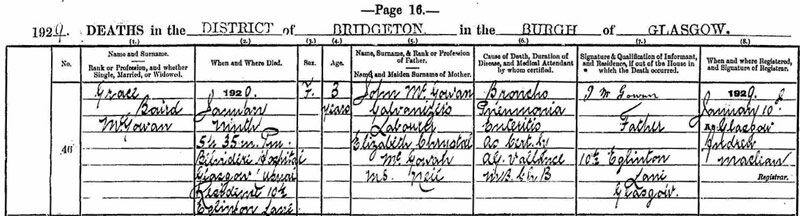 —Page 16.—
1929. DEATHS in the DISTRICT of BRIDGETON in the BURGH of GLASGOW.
(1.) (2.) (3.) (4.) (5.) (6.) (7.) (8.)
No. Name and Surname. Rank or Profession, and whether Single, Married, or Widowed. When and Where Died. Sex. Age. Name, Surname, & Rank or Profession of Father. Name, and Maiden Surname of Mother. Cause of Death, Duration of Disease, and Medical Attendant by whom certified. Signature & Qualification of Informant, and Residence, if out of the House in which the Death occurred. When and where Registered, and Signature of Registrar.
46
Grace
Baird
McGowan
1929.
January
Ninth
5h 35m P.M.
Belvidere Hospital
Glasgow Usual
Residence 102
Eglinton Lane
F.
3
years
John McGowan
Galvanizers
Labourer
Elizabeth Chrystal
McGowan
M.S. Neil
Broncho
Pneumonia
Enteritis
As Cert. by
Vallance
M.B. Ch.B
McGowan
Father
Eglinton
Lane
Glasgow.
1929.
January 10th
At Glasgow
Maclean
Registrar.